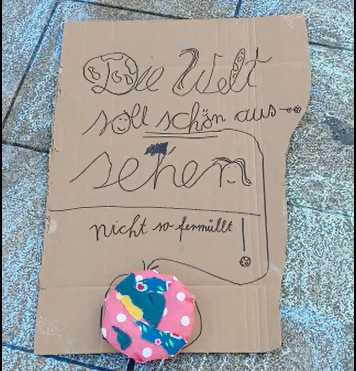 Die Welt
soll schön aus-
sehen
nicht so fermüllt!